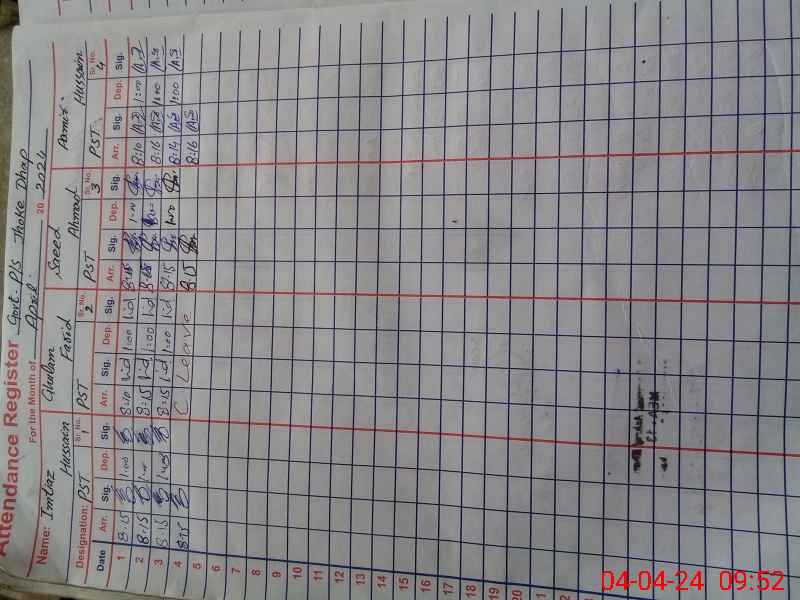 Attendance Register Govt. P/S Thoke Dhap
For the Month of April 20 2024
Name: Imtiaz Hussain Ghulam Farid Saeed Ahmad Hussain
Designation: PST Sr. No. 1 PST Sr. No. 2 PST Sr. No. 3 PST Sr. No. 4
Date Arr. Sig. Dep. Sig. Arr. Sig. Dep. Sig. Arr. Sig. Dep. Sig. Arr. Sig. Dep. Sig.
1 8:15 1:00 8:10 1:00 8:15 1:00 8:10 1:00
2 8:15 1:00 8:15 1:00 8:15 1:00 8:16 1:00
3 8:15 1:00 8:15 1:00 8:15 1:00 8:14 1:00
4 8:15 C Leave 8:15 8:16
5
6
7
8
9
10
11
12
13
14
15
16
17
18
19
20
04-04-24 09:52